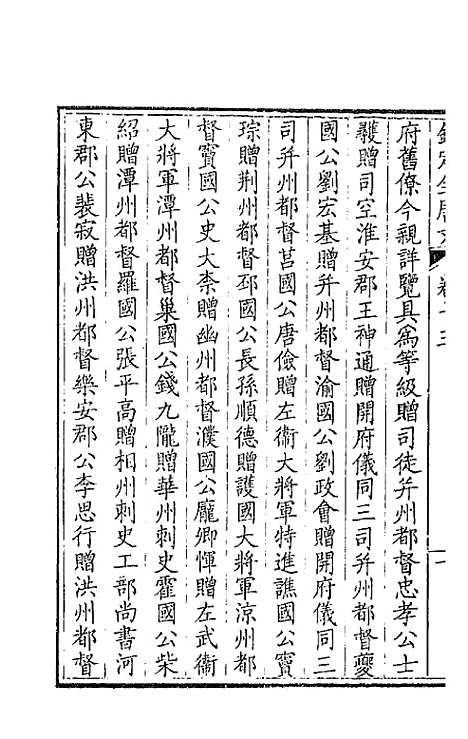 欽定全唐文 卷十三
府舊僚今親詳覽具爲等級贈司徒幷州都督忠孝公士
彠贈司空淮安郡王神通贈開府儀同三司幷州都督夔
國公劉宏基贈幷州都督渝國公劉政會贈開府儀同三
司幷州都督莒國公唐儉贈左衞大將軍特進譙國公竇
琮贈荆州都督邳國公長孫順德贈護國大將軍涼州都
督竇國公史大柰贈幽州都督濮國公龐卿惲贈左武衞
大將軍潭州都督巢國公錢九隴贈華州刺史霍國公柴
紹贈潭州都督羅國公張平高贈相州刺史工部尚書河
東郡公裴寂贈洪州都督樂安郡公李思行贈洪州都督